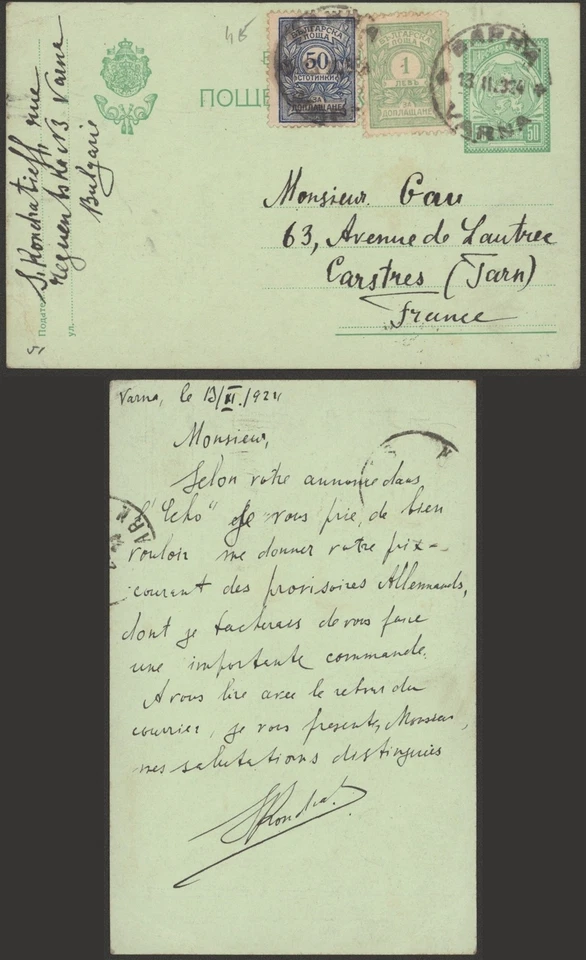 45
БЪЛГАРСКА
ПОЩА
50
СТОТИНКИ
ЗА
ДОПЛАЩАНЕ
БЪЛГАРСКА
ПОЩА
1
ЛЕВЪ
ЗА
ДОПЛАЩАНЕ
ВАРНА
13.II.924
VARNA
50
ПОЩЕ
S. Kondratieff, rue
Reguentska N3 Varna
Bulgarie
Подате
ул.
Monsieur Gau
63, Avenue de Lautrec
Carstres (Tarn)
France
Varna, le 13/II./1924
Monsieur,
Selon votre annonce dans
l'"Echo" je vous prie, de bien
vouloir me donner votre prix-
courant des provisoires Allemands,
dont je tacherais de vous faire
une importante commande.
A vous lire avec le retour du
courrier, je vous presente, Monsieur,
mes salutations distinguées
SKondrat.